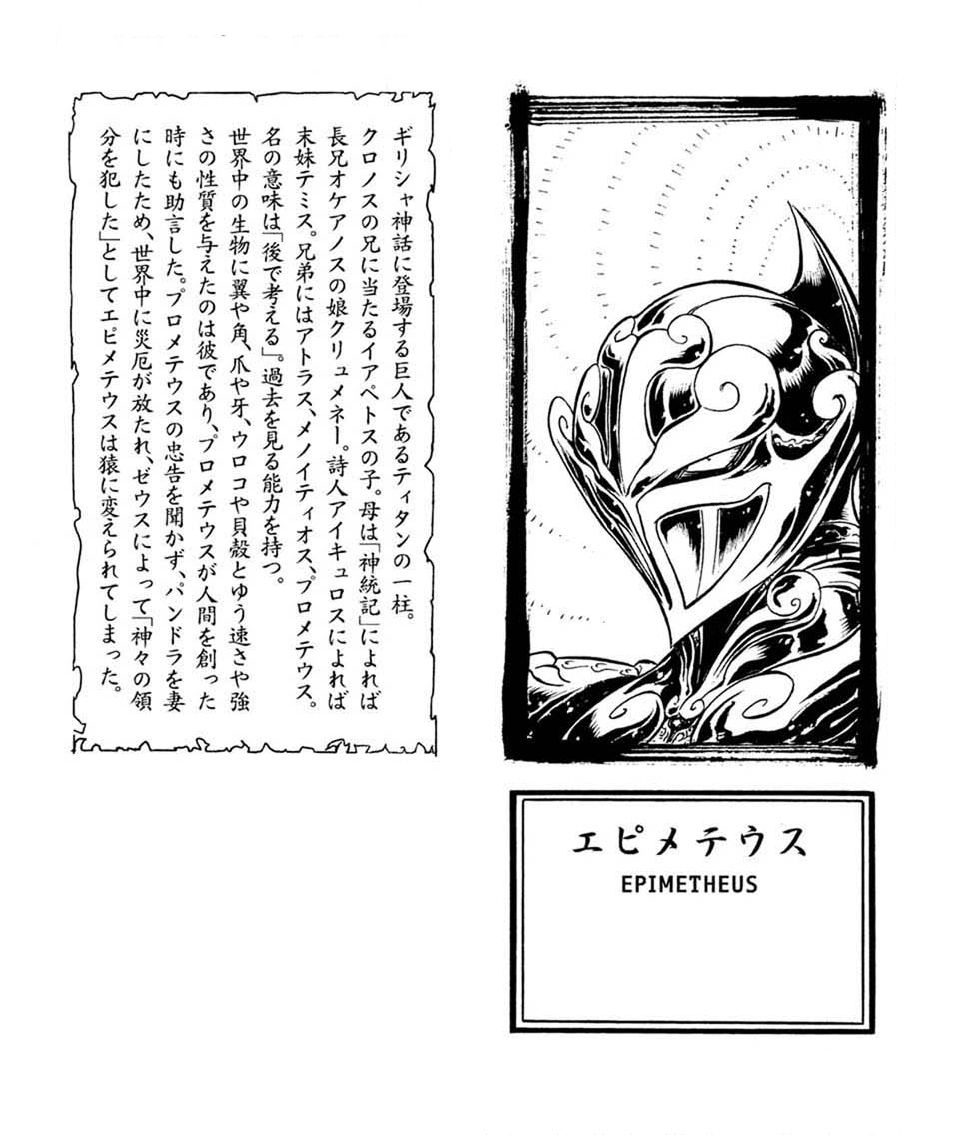 ギリシャ神話に登場する巨人であるティタンの一柱。
クロノスの兄に当たるイアペトスの子。母は「神統記」によれば
長兄オケアノスの娘クリュメネー。詩人アイキュロスによれば
末妹テミス。兄弟にはアトラス、メノイティオス、プロメテウス。
名の意味は「後で考える」。過去を見る能力を持つ。
世界中の生物に翼や角、爪や牙、ウロコや貝殻とゆう速さや強
さの性質を与えたのは彼であり、プロメテウスが人間を創った
時にも助言した。プロメテウスの忠告を聞かず、パンドラを妻
にしたため、世界中に災厄が放たれ、ゼウスによって「神々の領
分を犯した」としてエピメテウスは猿に変えられてしまった。
エピメテウス
EPIMETHEUS